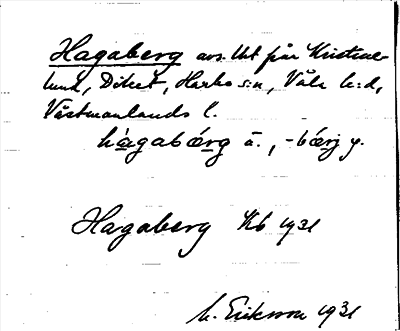 Hagaberg avs. lht från Kristine-
lund, Dikert, Harbo s:n, Våla h:d,
Västmanlands l.
hágabǽrg ä., -bǽrj y.
Hagaberg Kb 1931
M. Eriksson 1931